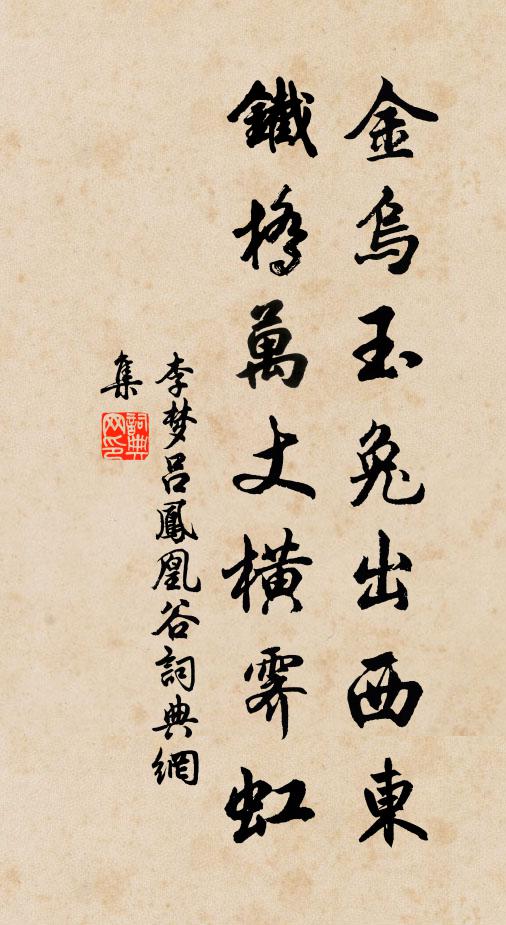 金烏玉兔出西東
鐵橋萬丈橫霽虹
李梦吕鳳凰谷詞典網
集
詞典网印